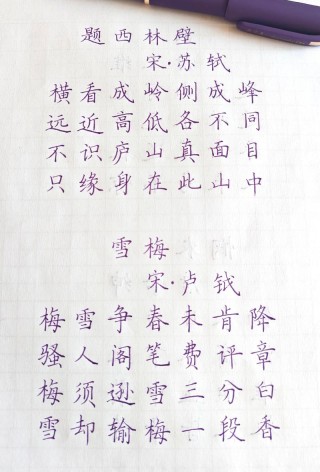 题西林壁
宋·苏轼
横看成岭侧成峰
远近高低各不同
不识庐山真面目
只缘身在此山中
雪梅
宋·卢钺
梅雪争春未肯降
骚人阁笔费评章
梅须逊雪三分白
雪却输梅一段香